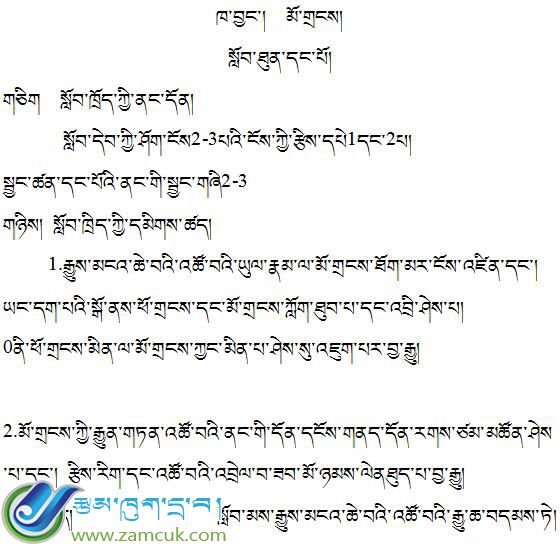 ཁ་བྱང་།   མོ་གྲངས།
སློབ་ཐུན་དང་པོ།
གཅིག   སློབ་ཁྲིད་ཀྱི་ནང་དོན།
སློབ་དེབ་ཀྱི་ཤོག་ངོས2-3པའི་ངོས་ཀྱི་རྩིས་དཔེ1དང་2པ།
སྦྱང་ཚན་དང་པོའི་ནང་གི་སྦྱང་གཞི2-3
གཉིས།  སློབ་ཁྲིད་ཀྱི་དམིགས་ཚད།
1.རྒྱུས་མངའ་ཆེ་བའི་འཚོ་བའི་ཡུལ་རྣམ་ལ་མོ་གྲངས་ཐོག་མར་ངོས་འཛིན་དང་།
ཡང་དག་པའི་སྒོ་ནས་ཕོ་གྲངས་དང་མོ་གྲངས་ཀློག་ཐུབ་པ་དང་འབྲི་ཤེས་པ།
0ནི་ཕོ་གྲངས་མིན་ལ་མོ་གྲངས་ཀྱང་མིན་པ་ཤེས་སུ་འཇུག་པར་བྱ་རྒྱུ།
2.མོ་གྲངས་ཀྱི་རྒྱུན་གཏན་འཚོ་བའི་ནང་གི་དོན་དངོས་གནད་དོན་རགས་ཙམ་མཚོན་ཤེས
་པ་དང་།  རྩིས་རིག་དང་འཚོ་བའི་འབྲེལ་བ་ཟབ་མོ་ཉམས་ལེན་ཐུད་པ་བྱ་རྒྱུ།
ཟམ་ཁུག་དྲ་བ། སློབ་མས་རྒྱུས་མངའ་ཆེ་བའི་འཚོ་བའི་རྒྱུ་ཆ་བདམས་ཏེ།
www.zamcuk.com